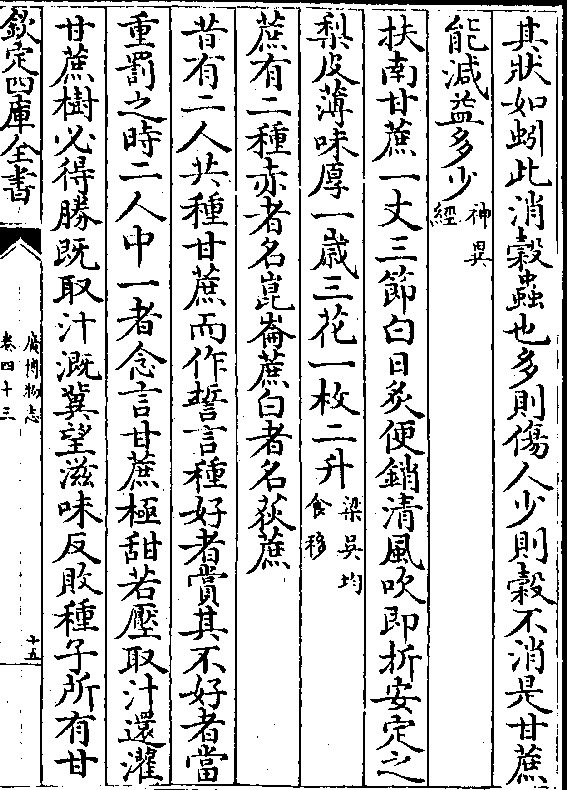 其狀如蚓此消穀蟲也多則傷人少則穀不消是甘蔗
能減益多少神異經
扶南甘蔗一丈三節白日炙便銷清風吹即折安定之
梨皮薄味厚一歲三花一枚二升梁吳均食移
蔗有二種赤者名崑崙蔗白者名荻蔗
昔有二人共種甘蔗而作誓言種好者賞其不好者當
重罰之時二人中一者念言甘蔗極甜若壓取汁還灌
甘蔗樹必得勝既取汁溉冀望滋味反敗種子所有甘
欽定四庫全書
廣博物志
卷四十三
十五